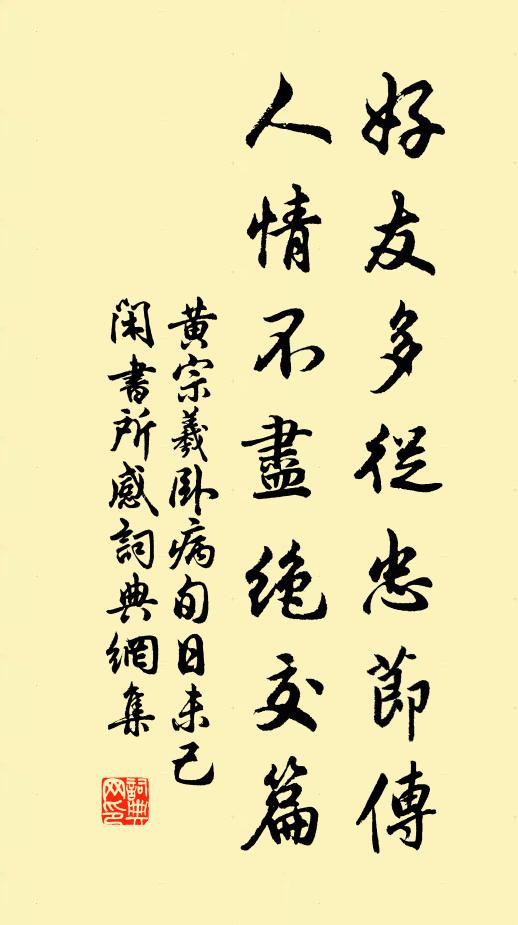 好友多從忠節傳
人情不盡絶交篇
黄宗羲臥病旬日未已
閑書所感詞典網集
詞典网印